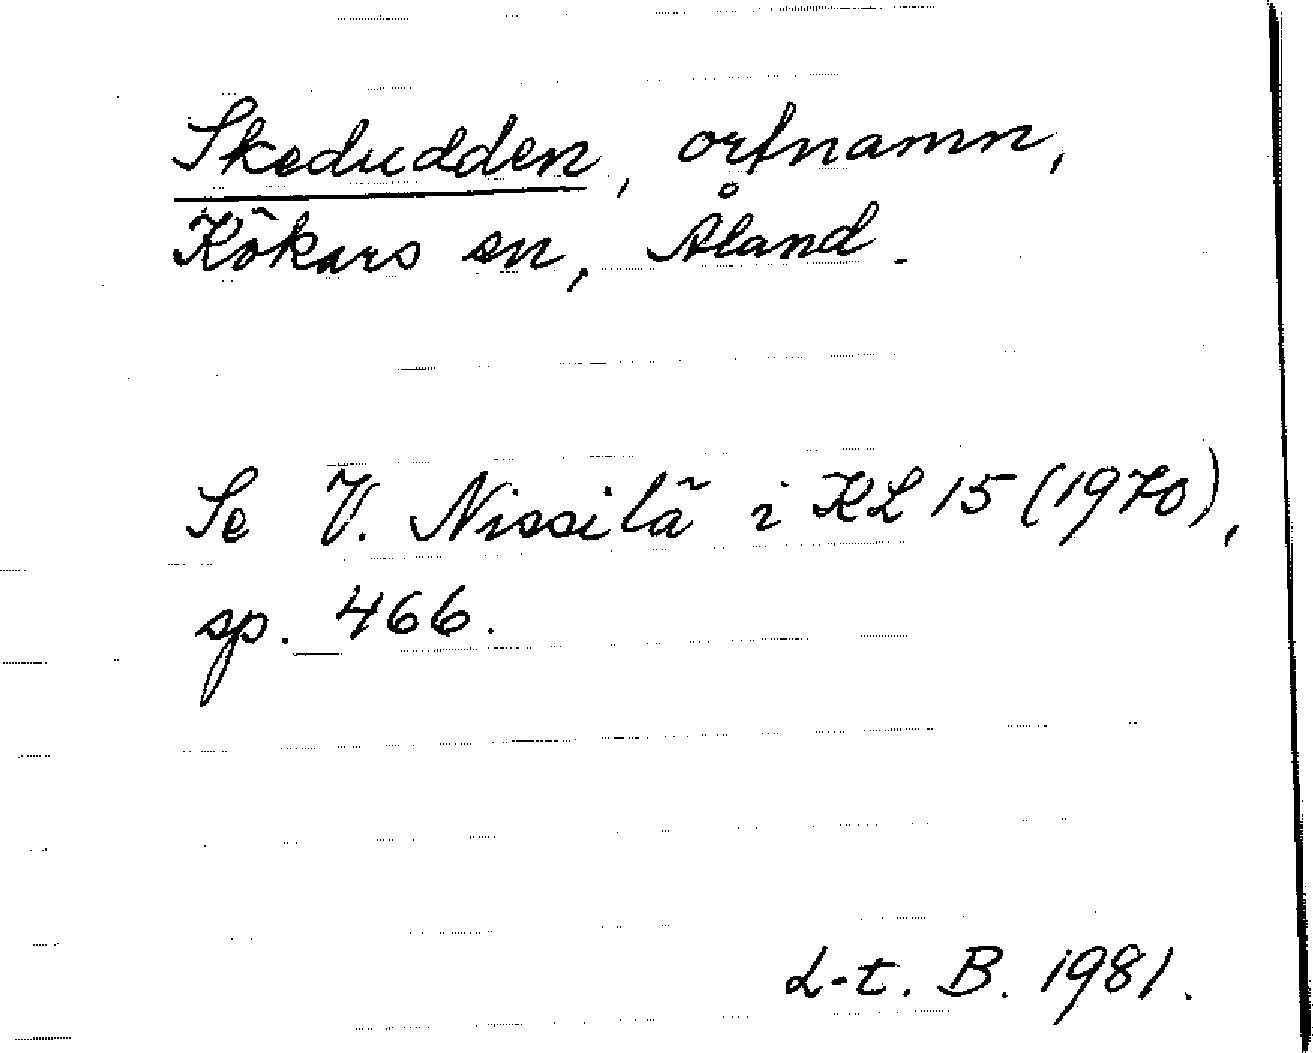 Skedudden, ortnamn,
Kökars sn, Åland.
Se V. Nissilä i KL 15 (1970),
sp. 466.
L-t. B. 1981.